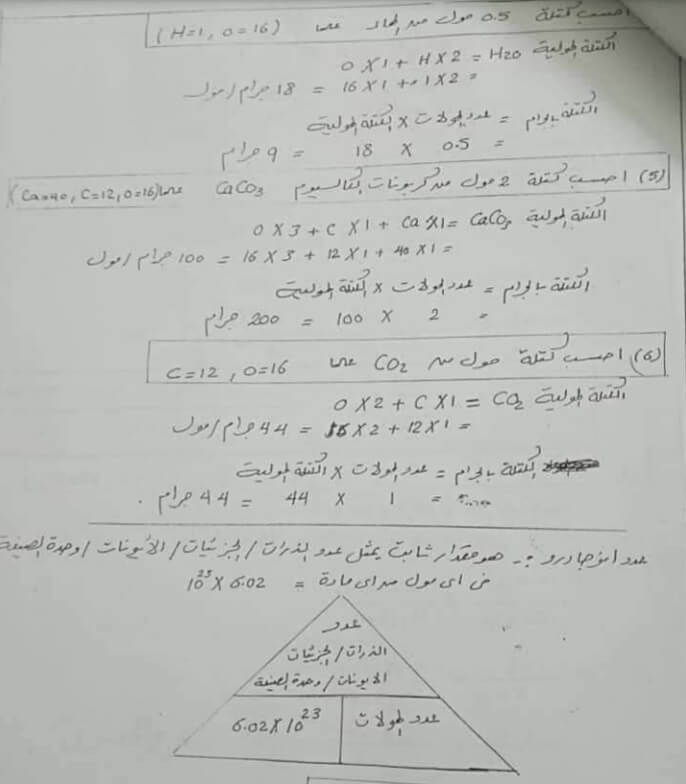 احسب كتلة 0.5 مول من الماء علما (H=1, O=16)
الكتلة المولية H2O = H X 2 + O X 1
= 1 X 2 + 16 X 1 = 18 جرام/مول
الكتلة بالجرام = عدد المولات X الكتلة المولية
= 0.5 X 18 = 9 جرام
(5) احسب كتلة 2 مول من كربونات الكالسيوم CaCO3 علما (Ca=40, C=12, O=16)
الكتلة المولية CaCO3 = Ca X 1 + C X 1 + O X 3
= 40 X 1 + 12 X 1 + 16 X 3 = 100 جرام/مول
الكتلة بالجرام = عدد المولات X الكتلة المولية
= 2 X 100 = 200 جرام
(6) احسب كتلة مول من CO2 علما C=12, O=16
الكتلة المولية CO2 = C X 1 + O X 2
= 12 X 1 + 16 X 2 = 44 جرام/مول
الكتلة بالجرام = عدد المولات X الكتلة المولية
= 1 X 44 = 44 جرام.
عدد افوجادرو :- هو مقدار ثابت يمثل عدد الذرات/الجزئيات/الأيونات/وحدة الصيغة
في اي مول من اي مادة = 6.02 X 10^23
عدد
الذرات/الجزئيات
الايونات/وحدة الصيغة
عدد المولات
6.02 X 10^23